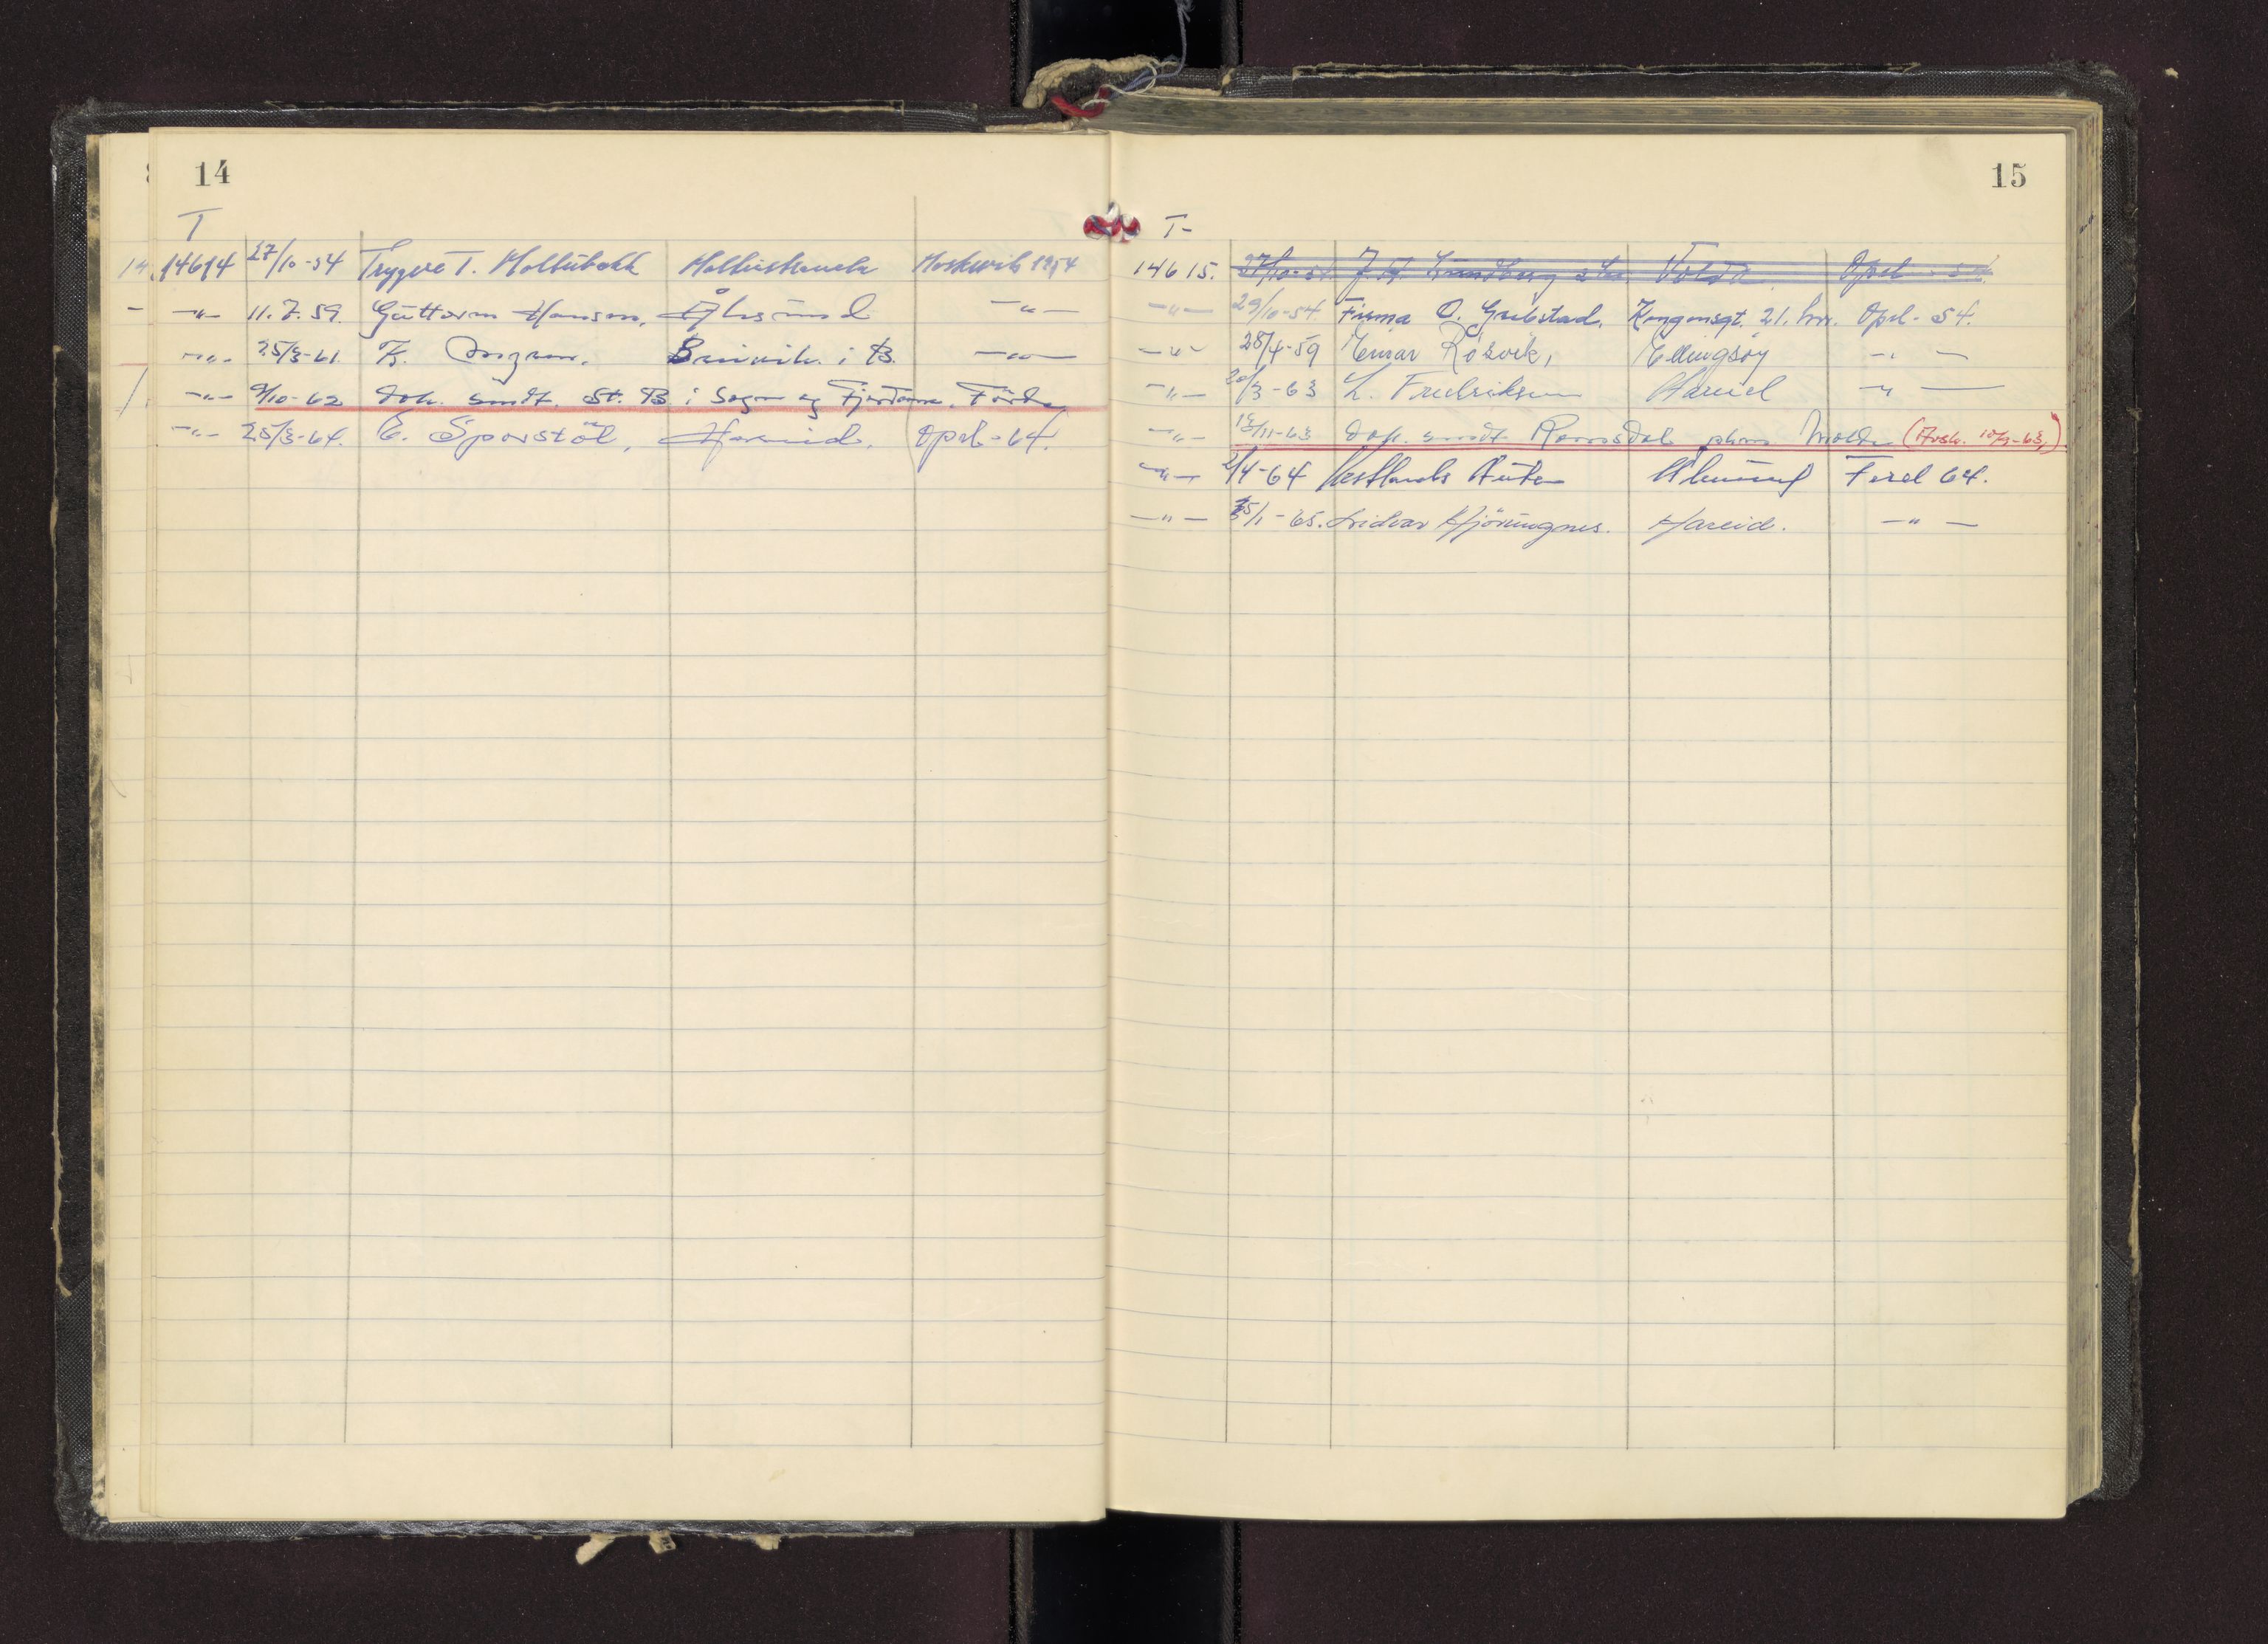 14
T
14614 27/10-54 Trygve T. Holtubakk Moskvich 1954
-"- 11.7.59. Guttorm Hansen, Ålesund -"-
-"- 25/3-61. K. i B. -"-
-"- 9/10-62 Dok. sendt. St. B. i Sogn og Fjordane, Förde
-"- 25/3-64. E. Sporstöl, Hareid. Opel-64.
15
T-
14615. 27/10-54 Volda Opel - 54.
-"- 29/10-54. Firma O. Grebstad, Kongensgt. 21. Opel - 54.
-"- 28/4-59 Einar Rösvik, Ellingsøy -"-
-"- 20/3-63 L. Fredriksen Hareid -"-
-"- 12/11-63 Dok. sendt Romsdal pkm Molde (Avsk. 10/9-63,)
-"- 2/4-64 Vestlands Auto Ålesund
-"- 25/1-65. Hjörungnes. Hareid. -"-